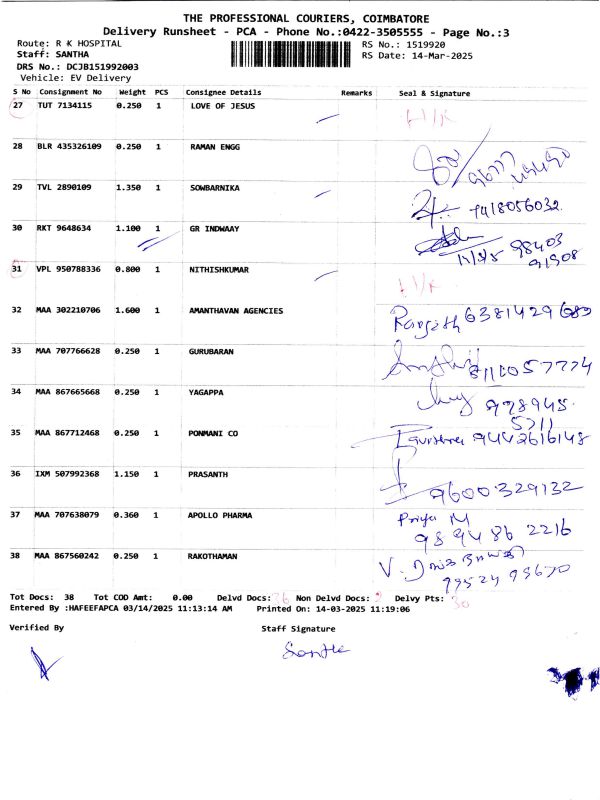 THE PROFESSIONAL COURIERS, COIMBATORE
Delivery Runsheet - PCA - Phone No.:0422-3505555 - Page No.:3
Route: R K HOSPITAL RS No.: 1519920
Staff: SANTHA RS Date: 14-Mar-2025
DRS No.: DCJB151992003
Vehicle: EV Delivery
S No Consignment No Weight PCS Consignee Details Remarks Seal & Signature
27 TUT 7134115 0.250 1 LOVE OF JESUS
28 BLR 435326109 0.250 1 RAMAN ENGG
29 TVL 2890109 1.350 1 SOWBARNIKA
9418056032
30 RKT 9648634 1.100 1 GR INDWAAY
98403
91908
31 VPL 950788336 0.800 1 NITHISHKUMAR
32 MAA 302210706 1.600 1 AMANTHAVAN AGENCIES
Ranjith
33 MAA 707766628 0.250 1 GURUBARAN
34 MAA 867665668 0.250 1 YAGAPPA
35 MAA 867712468 0.250 1 PONMANI CO
9442616148
36 IXM 507992368 1.150 1 PRASANTH
9600329132
37 MAA 707638079 0.360 1 APOLLO PHARMA
Priya M
989486 2216
38 MAA 867560242 0.250 1 RAKOTHAMAN
Tot Docs: 38 Tot COD Amt: 0.00 Delvd Docs: Non Delvd Docs: Delvy Pts: 30
Entered By :HAFEEFAPCA 03/14/2025 11:13:14 AM Printed On: 14-03-2025 11:19:06
Verified By Staff Signature
Santha